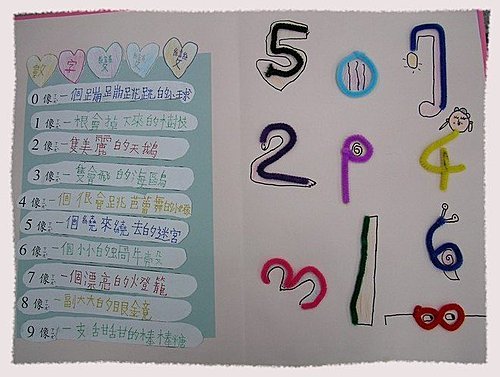 數字變變變
0 像 一個蹦蹦跳跳的小球
1 像 一根會掉下來的樹枝
2 像 一隻美麗的天鵝
3 像 一隻會飛的海鷗
4 像 一個很會跳芭蕾舞的小姐
5 像 一個繞來繞去的迷宮
6 像 一個小小的蝸牛殼
7 像 一個漂亮的燈籠
8 像 一副大大的眼鏡
9 像 一支甜甜的棒棒糖
5 0 7
2 9 4
3 1 6
8